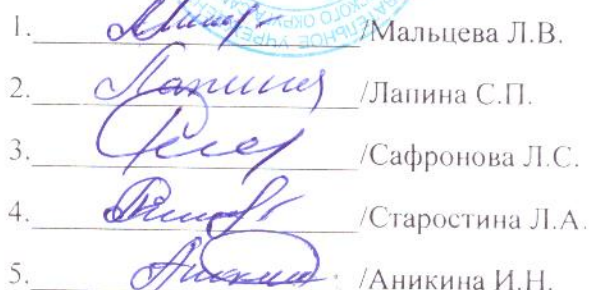 1. /Мальцева Л.В.
2. Лапина /Лапина С.П.
3. /Сафронова Л.С.
4. /Старостина Л.А.
5. /Аникина И.Н.